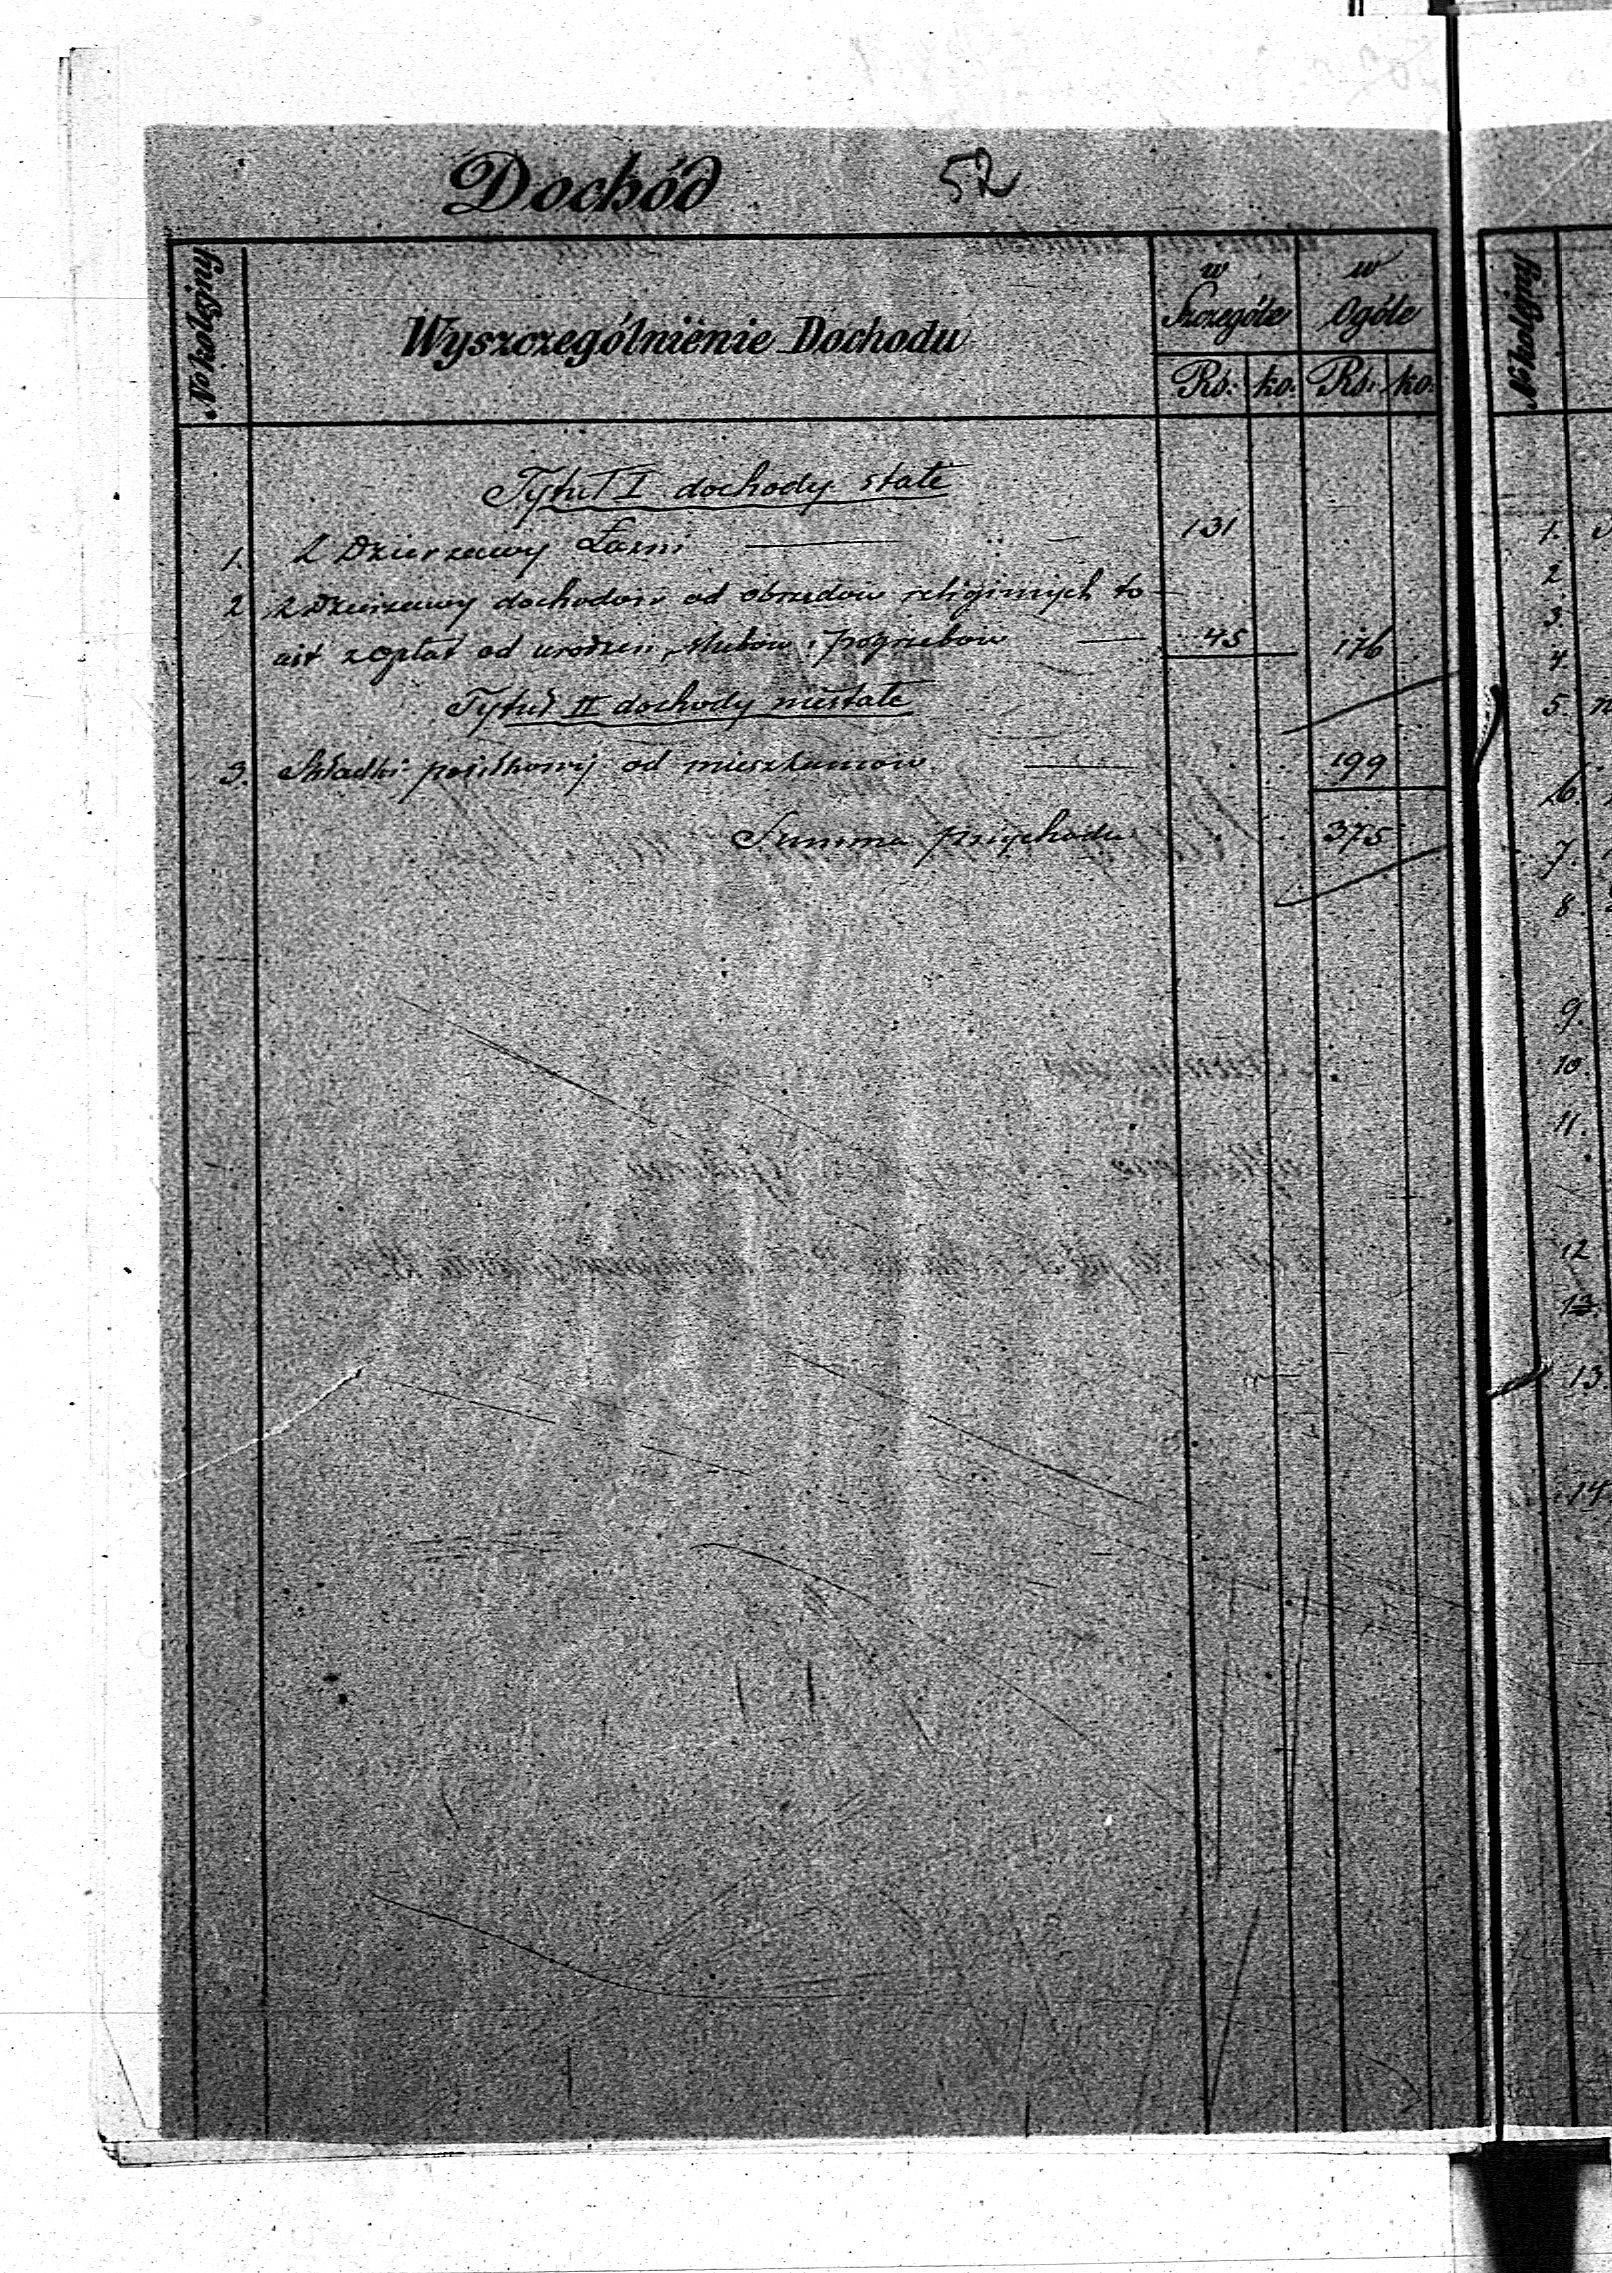 Dochód 52
No kolejny
Wyszczególnienie Dochodu
w Szczególe
w Ogóle
Rs: ko. Rs: ko.
Tytuł I dochody stałe
1. Z Dzierzawy Łazni 131
2 Z Dzierzawy dochodow od obrzedow religijnych to
iest zopłat od urodzen, slubow i pogrzebow 45 176
Tytuł II dochody niestałe
3. Składki posiłkowij od mieszkancow 199
Summa przychodu 375
No kolejny
1.
2
3
4.
5.
6.
7.
8
9.
10.
11.
12
13.
13.
14